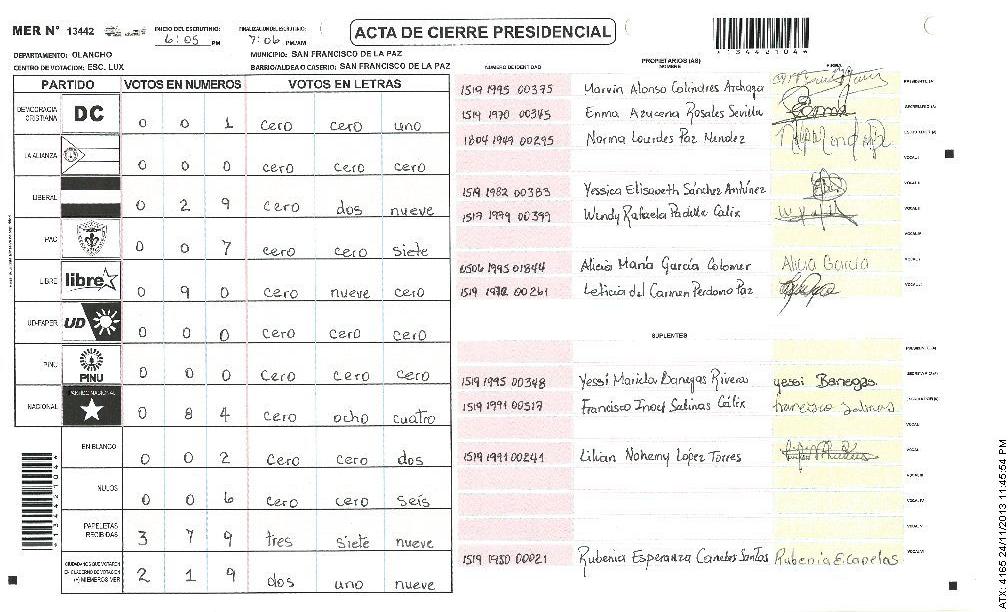 MER Nº 13442
INICIO DEL ESCRUTINIO: 6:05 PM
FINALIZACION DEL ESCRUTINIO: 7:06 PM/AM
ACTA DE CIERRE PRESIDENCIAL
DEPARTAMENTO: OLANCHO
MUNICIPIO: SAN FRANCISCO DE LA PAZ
CENTRO DE VOTACION: ESC. LUX
BARRIO/ALDEA O CASERIO: SAN FRANCISCO DE LA PAZ
PARTIDO VOTOS EN NUMEROS VOTOS EN LETRAS
DEMOCRACIA CRISTIANA DC 0 0 1 cero cero uno
LA ALIANZA 0 0 0 cero cero cero
LIBERAL 0 2 9 cero dos nueve
PAC 0 0 7 cero cero siete
LIBRE libre 0 9 0 cero nueve cero
UD-FAPER UD 0 0 0 cero cero cero
PINU PINU 0 0 0 cero cero cero
NACIONAL PARTIDO NACIONAL 0 8 4 cero ocho cuatro
EN BLANCO 0 0 2 cero cero dos
NULOS 0 0 6 cero cero seis
PAPELETAS RECIBIDAS 3 7 9 tres siete nueve
CIUDADANOS QUE VOTARON EN CUADERNO DE VOTACION (+) MIEMBROS MER 2 1 9 dos uno nueve
PROPIETARIOS (AS)
NUMERO DE IDENTIDAD NOMBRE FIRMA
1519 1995 00375 Marvin Alonso Colindres Archaga PRESIDENTE (A)
1519 1970 00345 Enma Azucena Rosales Sevilla SECRETARIO (A)
1804 1949 00295 Norma Lourdes Paz Mendez ESCRUTADOR (A)
VOCAL I
1519 1982 00383 Yessica Elisabeth Sánchez Antúnez VOCAL II
1517 1979 00399 Wendy Rafaela Padilla Calix VOCAL III
VOCAL IV
0506 1995 01844 Alicia María García Colomer Alicia García VOCAL V
1519 1972 00261 Leticia del Carmen Perdomo Paz
SUPLENTES
PRESIDENTE (A)
1519 1995 00348 Yessi Mariela Banegas Rivera yessi Banegas SECRETARIO (A)
1519 1991 00517 Francisco Inoef Salinas Cálix francisco Salinas ESCRUTADOR (A)
VOCAL I
1519 1991 00241 Lilian Nohemy López Torres VOCAL II
VOCAL III
VOCAL IV
VOCAL V
1519 1950 00021 Rubenia Esperanza Canelas Santos Rubenia E. Canelas VOCAL VI
ATX: 4165 24/11/2013 11:45:54 PM